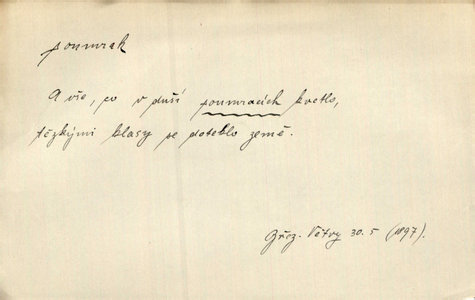 poumrak
A vše, co v duši poumracích kvetlo,
těžkými klasy se dotklo země.
Břez. Větry 30.5 (1897).